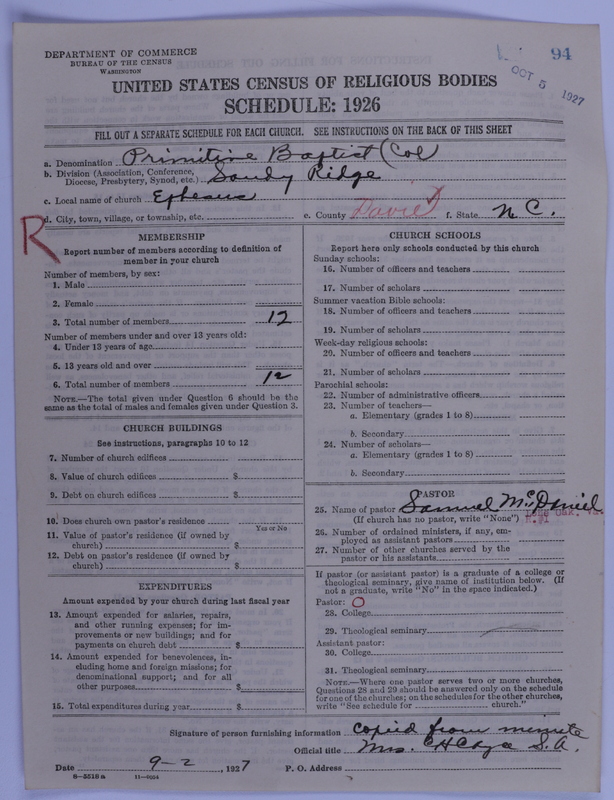 94
OCT 5 1927
DEPARTMENT OF COMMERCE
BUREAU OF THE CENSUS
WASHINGTON
UNITED STATES CENSUS OF RELIGIOUS BODIES
SCHEDULE: 1926
FILL OUT A SEPARATE SCHEDULE FOR EACH CHURCH. SEE INSTRUCTIONS ON THE BACK OF THIS SHEET
a. Denomination Primitive Baptist (Col
b. Division (Association, Conference, Diocese, Presbytery, Synod, etc.) Sandy Ridge
c. Local name of church Ephesus
d. City, town, village, or township, etc. e. County Davie f. State N C.
R
MEMBERSHIP
Report number of members according to definition of member in your church
Number of members, by sex:
1. Male
2. Female
3. Total number of members 12
Number of members under and over 13 years old:
4. Under 13 years of age
5. 13 years old and over
6. Total number of members 12
NOTE.—The total given under Question 6 should be the same as the total of males and females given under Question 3.
CHURCH BUILDINGS
See instructions, paragraphs 10 to 12
7. Number of church edifices
8. Value of church edifices $
9. Debt on church edifices $
10. Does church own pastor's residence
Yes or No
11. Value of pastor's residence (if owned by church) $
12. Debt on pastor's residence (if owned by church) $
EXPENDITURES
Amount expended by your church during last fiscal year
13. Amount expended for salaries, repairs, and other running expenses; for improvements or new buildings; and for payments on church debt $
14. Amount expended for benevolences, including home and foreign missions; for denominational support; and for all other purposes $
15. Total expenditures during year $
CHURCH SCHOOLS
Report here only schools conducted by this church
Sunday schools:
16. Number of officers and teachers
17. Number of scholars
Summer vacation Bible schools:
18. Number of officers and teachers
19. Number of scholars
Week-day religious schools:
20. Number of officers and teachers
21. Number of scholars
Parochial schools:
22. Number of administrative officers
23. Number of teachers—
a. Elementary (grades 1 to 8)
b. Secondary
24. Number of scholars—
a. Elementary (grades 1 to 8)
b. Secondary
PASTOR
25. Name of pastor Samuel McDaniel
(If church has no pastor, write "None") R.#1
26. Number of ordained ministers, if any, employed as assistant pastors
27. Number of other churches served by the pastor or his assistants
If pastor (or assistant pastor) is a graduate of a college or theological seminary, give name of institution below. (If not a graduate, write "No" in the space indicated.)
Pastor: O
28. College
29. Theological seminary
Assistant pastor:
30. College
31. Theological seminary
NOTE.—Where one pastor serves two or more churches, Questions 28 and 29 should be answered only on the schedule for one of the churches; on the schedules for the other churches, write "See schedule for church."
Signature of person furnishing information copied from minute
Official title Mrs. S. A.
Date 9-2, 1927 P. O. Address
8-5518 a 11-9024